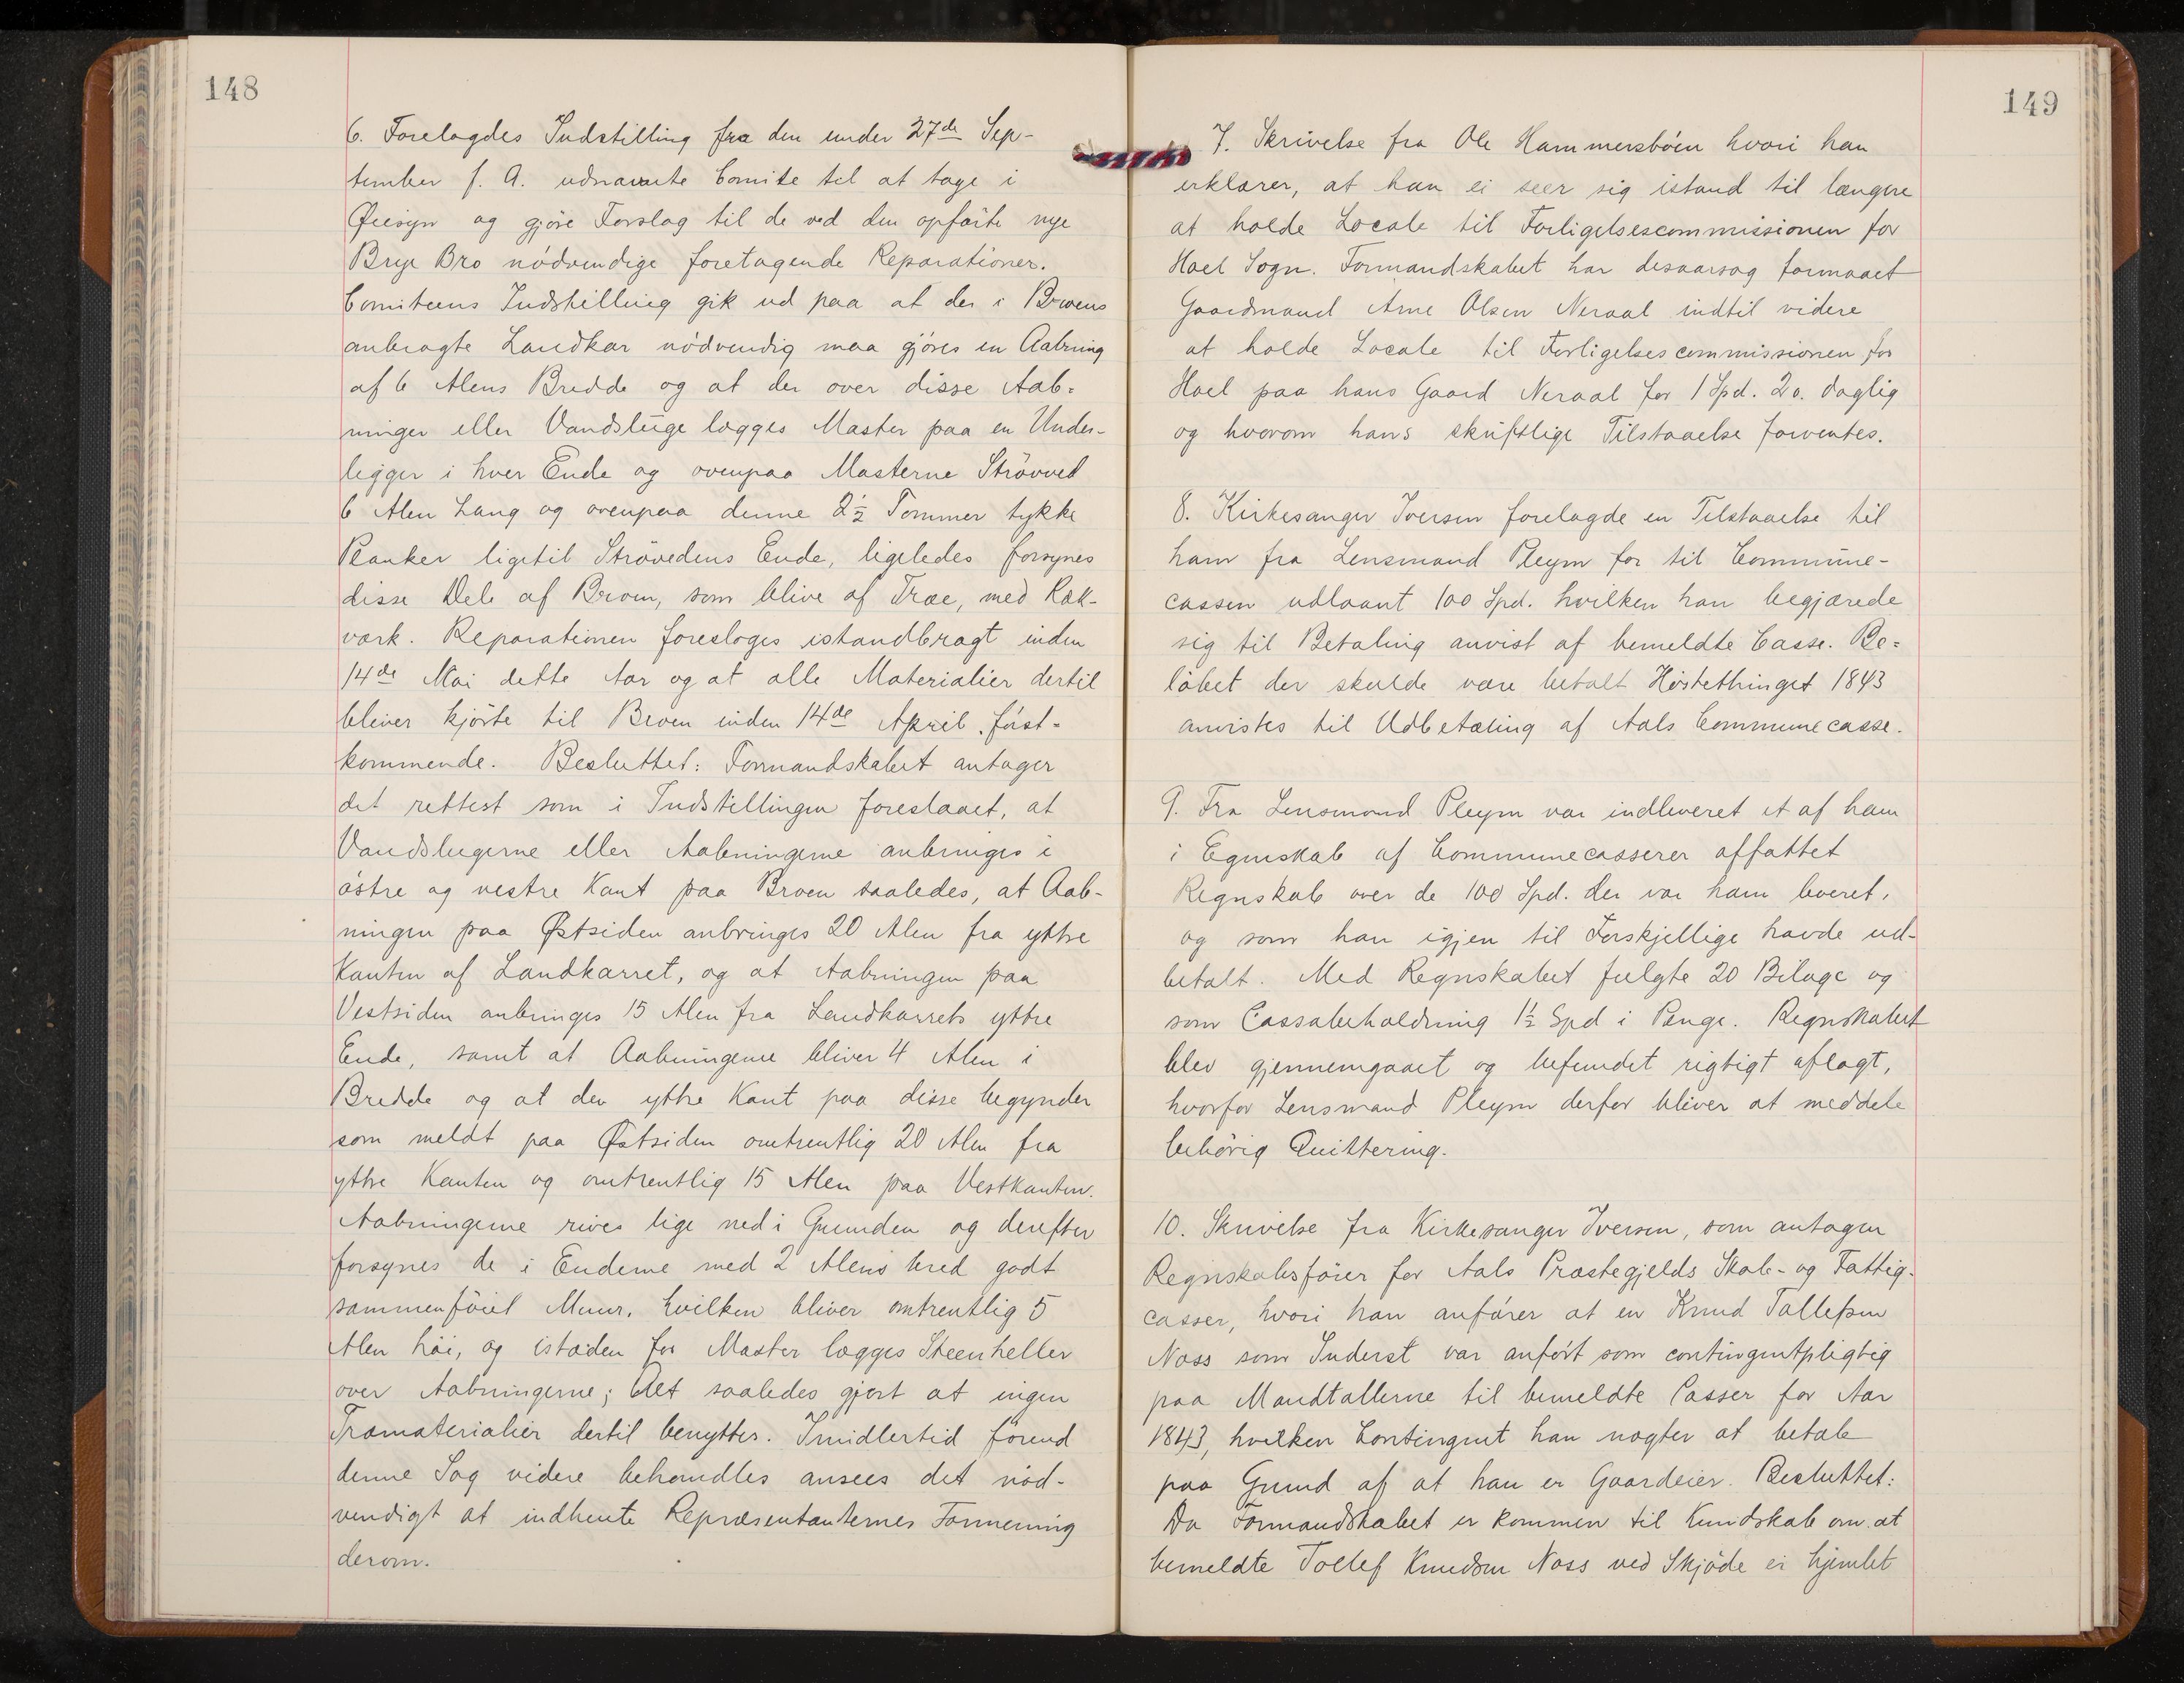 148
6. Forelagdes Indstilling fra den under 27de Sep-
tember f. A. udnævnte Comite til at tage i
Øiesyn og gjøre Forslag til de ved den opførte nye
Brye Bro nödvendige foretagende Reparationer.
Comiteens Indstilling gik ud paa at der i Broens
anbragte Landkar nödvendig maa gjöres en Aabning
af 6 Alens Bredde og at der over disse Aab-
ninger eller Vandsluge lægges Master paa en Under-
ligger i hver Ende og ovenpaa Masterne Strövved
6 Alen Lang og ovenpaa denne 2½ Tommer tykke
Planker ligetil Strövedens Ende, ligeledes forsynes
disse Dele af Broen, som blive af Træ, med Ræk-
værk. Reparationen foreslages istandbragt inden
14de Mai dette Aar og at alle Materialier dertil
bliver kjörte til Broen inden 14de April först-
kommende. Besluttet: Formandskabet antager
det rettest som i Indstillingen foreslaaet, at
Vandslugerne eller Aabningerne anbringes i
östre og vestre Kant paa Broen saaledes, at Aab-
ningen paa Østsiden anbringes 20 Alen fra yttre
Kanten af Landkarret, og at Aabningen paa
Vestsiden anbringes 15 Alen fra Landkarrets yttre
Ende, samt at Aabningerne bliver 4 Alen i
Bredde og at den yttre Kant paa disse begynder
som meldt paa Østsiden omtrentlig 20 Alen fra
yttre Kanten og omtrentlig 15 Alen paa Vestkanten.
Aabningerne rives lige ned i Grunden og derefter
forsynes de i Enderne med 2 Alens bred godt
sammenföiet Muur, hvilken bliver omtrentlig 5
Alen höi, og istæden for Master lægges Steenheller
over Aabningerne; Alt saaledes gjort at ingen
Træmaterialier dertil benyttes. Imidlertid förend
denne Sag videre behandles ansees det nöd-
vendigt at indhente Repræsentanternes Formening
derom.
149
7. Skrivelse fra Ole Hammersböen hvori han
erklærer, at han ei seer sig istand til længere
at holde Locale til Forligelsescommissionen for
Hoel Sogn. Formandskabet har desaarsag formaaet
Gaardmand Arne Olsen Neraal indtil videre
at holde Locale til Forligelsescommissionen for
Hoel paa hans Gaard Neraal for 1 Spd. 2o. daglig
og hvorom hans skriftlige Tilstaaelse forventes.
8. Kirkesanger Iversen forelagde en Tilstaaelse til
ham fra Lensmand Pleym for til Commune-
cassen udlaant 100 Spd. hvilken han begjærede
sig til Betaling anvist af bemeldte Casse. Be-
löbet der skulde være betalt Høstethinget 1843
anvistes til Udbetaling af Aals Communecasse.
9. Fra Lensmand Pleym var indleveret et af ham
i Egenskab af Communecasserer affattet
Regnskab over de 100 Spd. der var ham leveret,
og som han igjen til Forskjellige havde ud-
betalt. Med Regnskabet fulgte 20 Bilage og
som Cassabeholdning 1½ Spd i Penge. Regnskabet
blev gjennemgaaet og befundet rigtigt aflagt,
hvorfor Lensmand Pleym derfor bliver at meddele
behörig Quittering.
10. Skrivelse fra Kirkesanger Iversen, som antagen
Regnskabsförer for Aals Præstegjelds Skole- og Fattig-
casser, hvori han anförer at en Knud Tollefsen
Noss som Inderst var anfört som contingentpligtig
paa Mandtallerne til bemeldte Casser for Aar
1843, hvilken Contingent han nægter at betale
paa Grund af at han er Gaardeier. Besluttet:
Da Formandskabet er kommen til Kundskab om at
bemeldte Tollef Knudsen Noss ved Skjöde er hjemlet